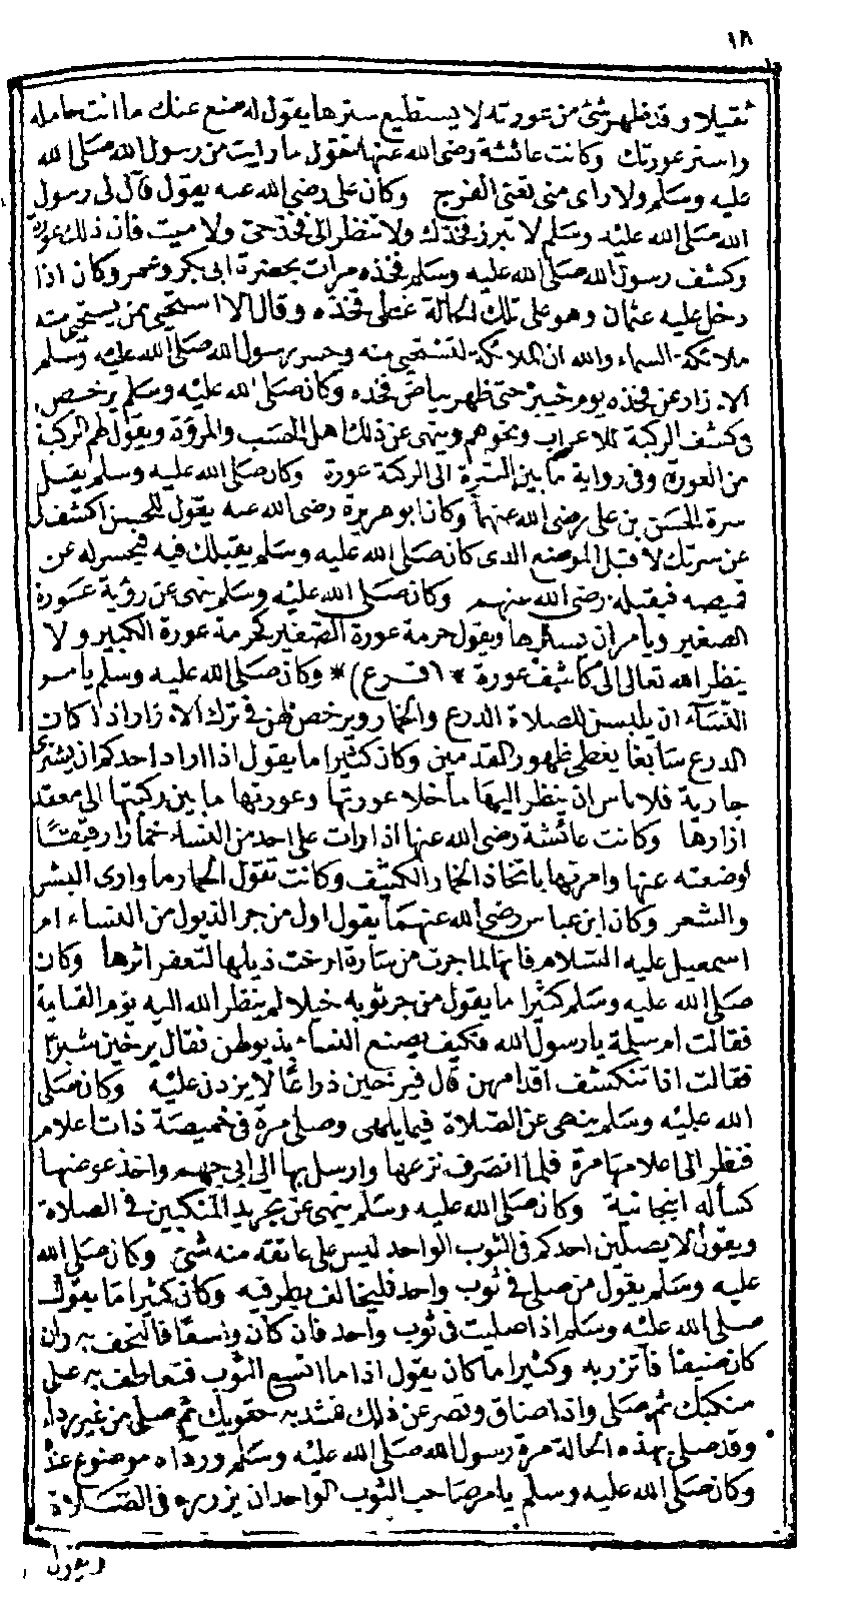 ١٨
ثقيلا وقد ظهر شئ من عورته لا يستطيع سترها يقول له ضع عنك ما انت حامله
واستر عورتك وكانت عائشة رضى الله عنها تقول ما رايت من رسول الله صلى الله
عليه وسلم ولا راى منى تعنى الفرج وكان على رضي الله عنه يقول قال لى رسول
الله صلى الله عليه وسلم لا تبرز فخذك ولا تنظر الى فخذ حى ولا ميت فان ذلك عورة
وكشف رسول الله صلى الله عليه وسلم فخذه مرات بحضرة ابى بكر وعمر وكان اذا
دخل عليه عثمان وهو على تلك الحالة غطى فخذه وقال الا استحيى ممن يستحيى منه
ملائكة السماء والله ان الملائكة لتستحيى منه وحسر رسول الله صلى الله عليه وسلم
الازار عن فخذه يوم خيبر حتى ظهر بياض فخذه وكان صلى الله عليه وسلم يرخص
فى كشف الركبة للاعراب ونحوهم وينهى عن ذلك اهل الحسب والمروة ويقول لهم الركبة
من العورة وفى رواية ما بين السرة الى الركبة عورة وكان صلى الله عليه وسلم يقبل
سرة الحسن بن على رضى الله عنهما وكان ابو هريرة رضى الله عنه يقول للحسن اكشف لى
عن سرتك لاقبل الموضع الذى كان صلى الله عليه وسلم يقبلك فيه فيحسر له عن
قميصه فيقبله رضى الله عنهم وكان صلى الله عليه وسلم ينهى عن رؤية عورة
الصغير ويأمر ان يسترها ويقول حرمة عورة الصغير كحرمة عورة الكبير ولا
ينظر الله تعالى الى كاشف عورة * (فرع) * وكان صلى الله عليه وسلم يامر
النساء ان يلبسن للصلاة الدرع والخمار ويرخص لهن فى ترك الازار اذا كان
الدرع سابغا يغطى ظهور القدمين وكان كثيرا ما يقول اذا اراد احدكم ان يشترى
جارية فلا باس ان ينظر اليها ما خلا عورتها وعورتها ما بين ركبتها الى معقد
ازارها وكانت عائشة رضى الله عنها اذا رات على احد من النساء خمارا رقيقا
وضعته عنها وامرتها باتخاذ الخمار الكثيف وكانت تقول الخمار ما وارى البشر
والشعر وكان ابن عباس رضى الله عنهما يقول اول من جر الذيول من النساء ام
اسمعيل عليه السلام فانها لما جرت من سارة ارخت ذيلها لتعفر اثرها وكان
صلى الله عليه وسلم كثيرا ما يقول من جر ثوبه خيلا لم ينظر الله اليه يوم القيامة
فقالت ام سلمة يا رسول الله فكيف يصنع النساء بذيولهن فقال يرخين شبرا
فقالت اذا تنكشف اقدامهن قال فيرخين ذراعا لا يزدن عليه وكان صلى
الله عليه وسلم ينهى عن الصلاة فيما يلهى وصلى مرة فى خميصة ذات اعلام
فنظر الى اعلامها مرة فلما انصرف نزعها وارسل بها الى ابى جهم واخذ عوضها
كساله انبجانية وكان صلى الله عليه وسلم ينهى عن تجريد المنكبين فى الصلاة
ويقول لا يصلين احدكم فى الثوب الواحد ليس على عاتقه منه شئ وكان صلى الله
عليه وسلم يقول من صلى فى ثوب واحد فليخالف بطرفيه وكان كثيرا ما يقول
صلى الله عليه وسلم اذا صليت فى ثوب واحد فان كان واسعا فالتحف به وان
كان ضيقا فاتزر به وكثيرا ما كان يقول اذا ما اتسع الثوب فتعاطف به على
منكبك ثم صلى واذا ضاق وقصر عن ذلك فشد به حقويك ثم صلى من غير رداء
وقد صلى بهذه الحالة مرة رسول الله صلى الله عليه وسلم ورداه موضوع عنده
وكان صلى الله عليه وسلم يامر صاحب الثوب الواحد ان يزرره فى الصلاة
ويقول